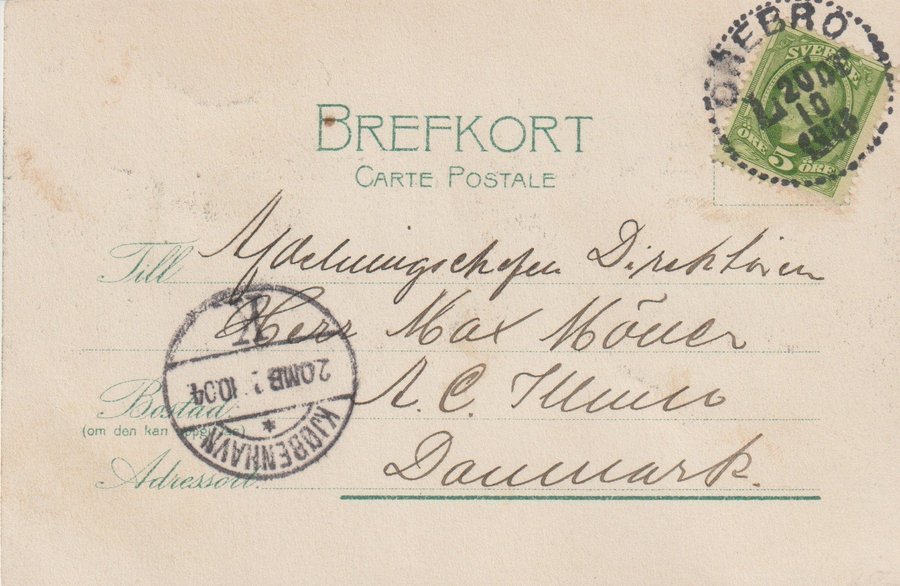 BREFKORT
CARTE POSTALE
ÖREBRO
20
10
SVERIGE
ÖRE 5 ÖRE
Till
Afdelningschefen Direktören
Herr Max Möller
K
KJØBENHAVN
20MB 10.04
Bostad
(om den kan
A. C. Illums
Adressort.
Danmark.